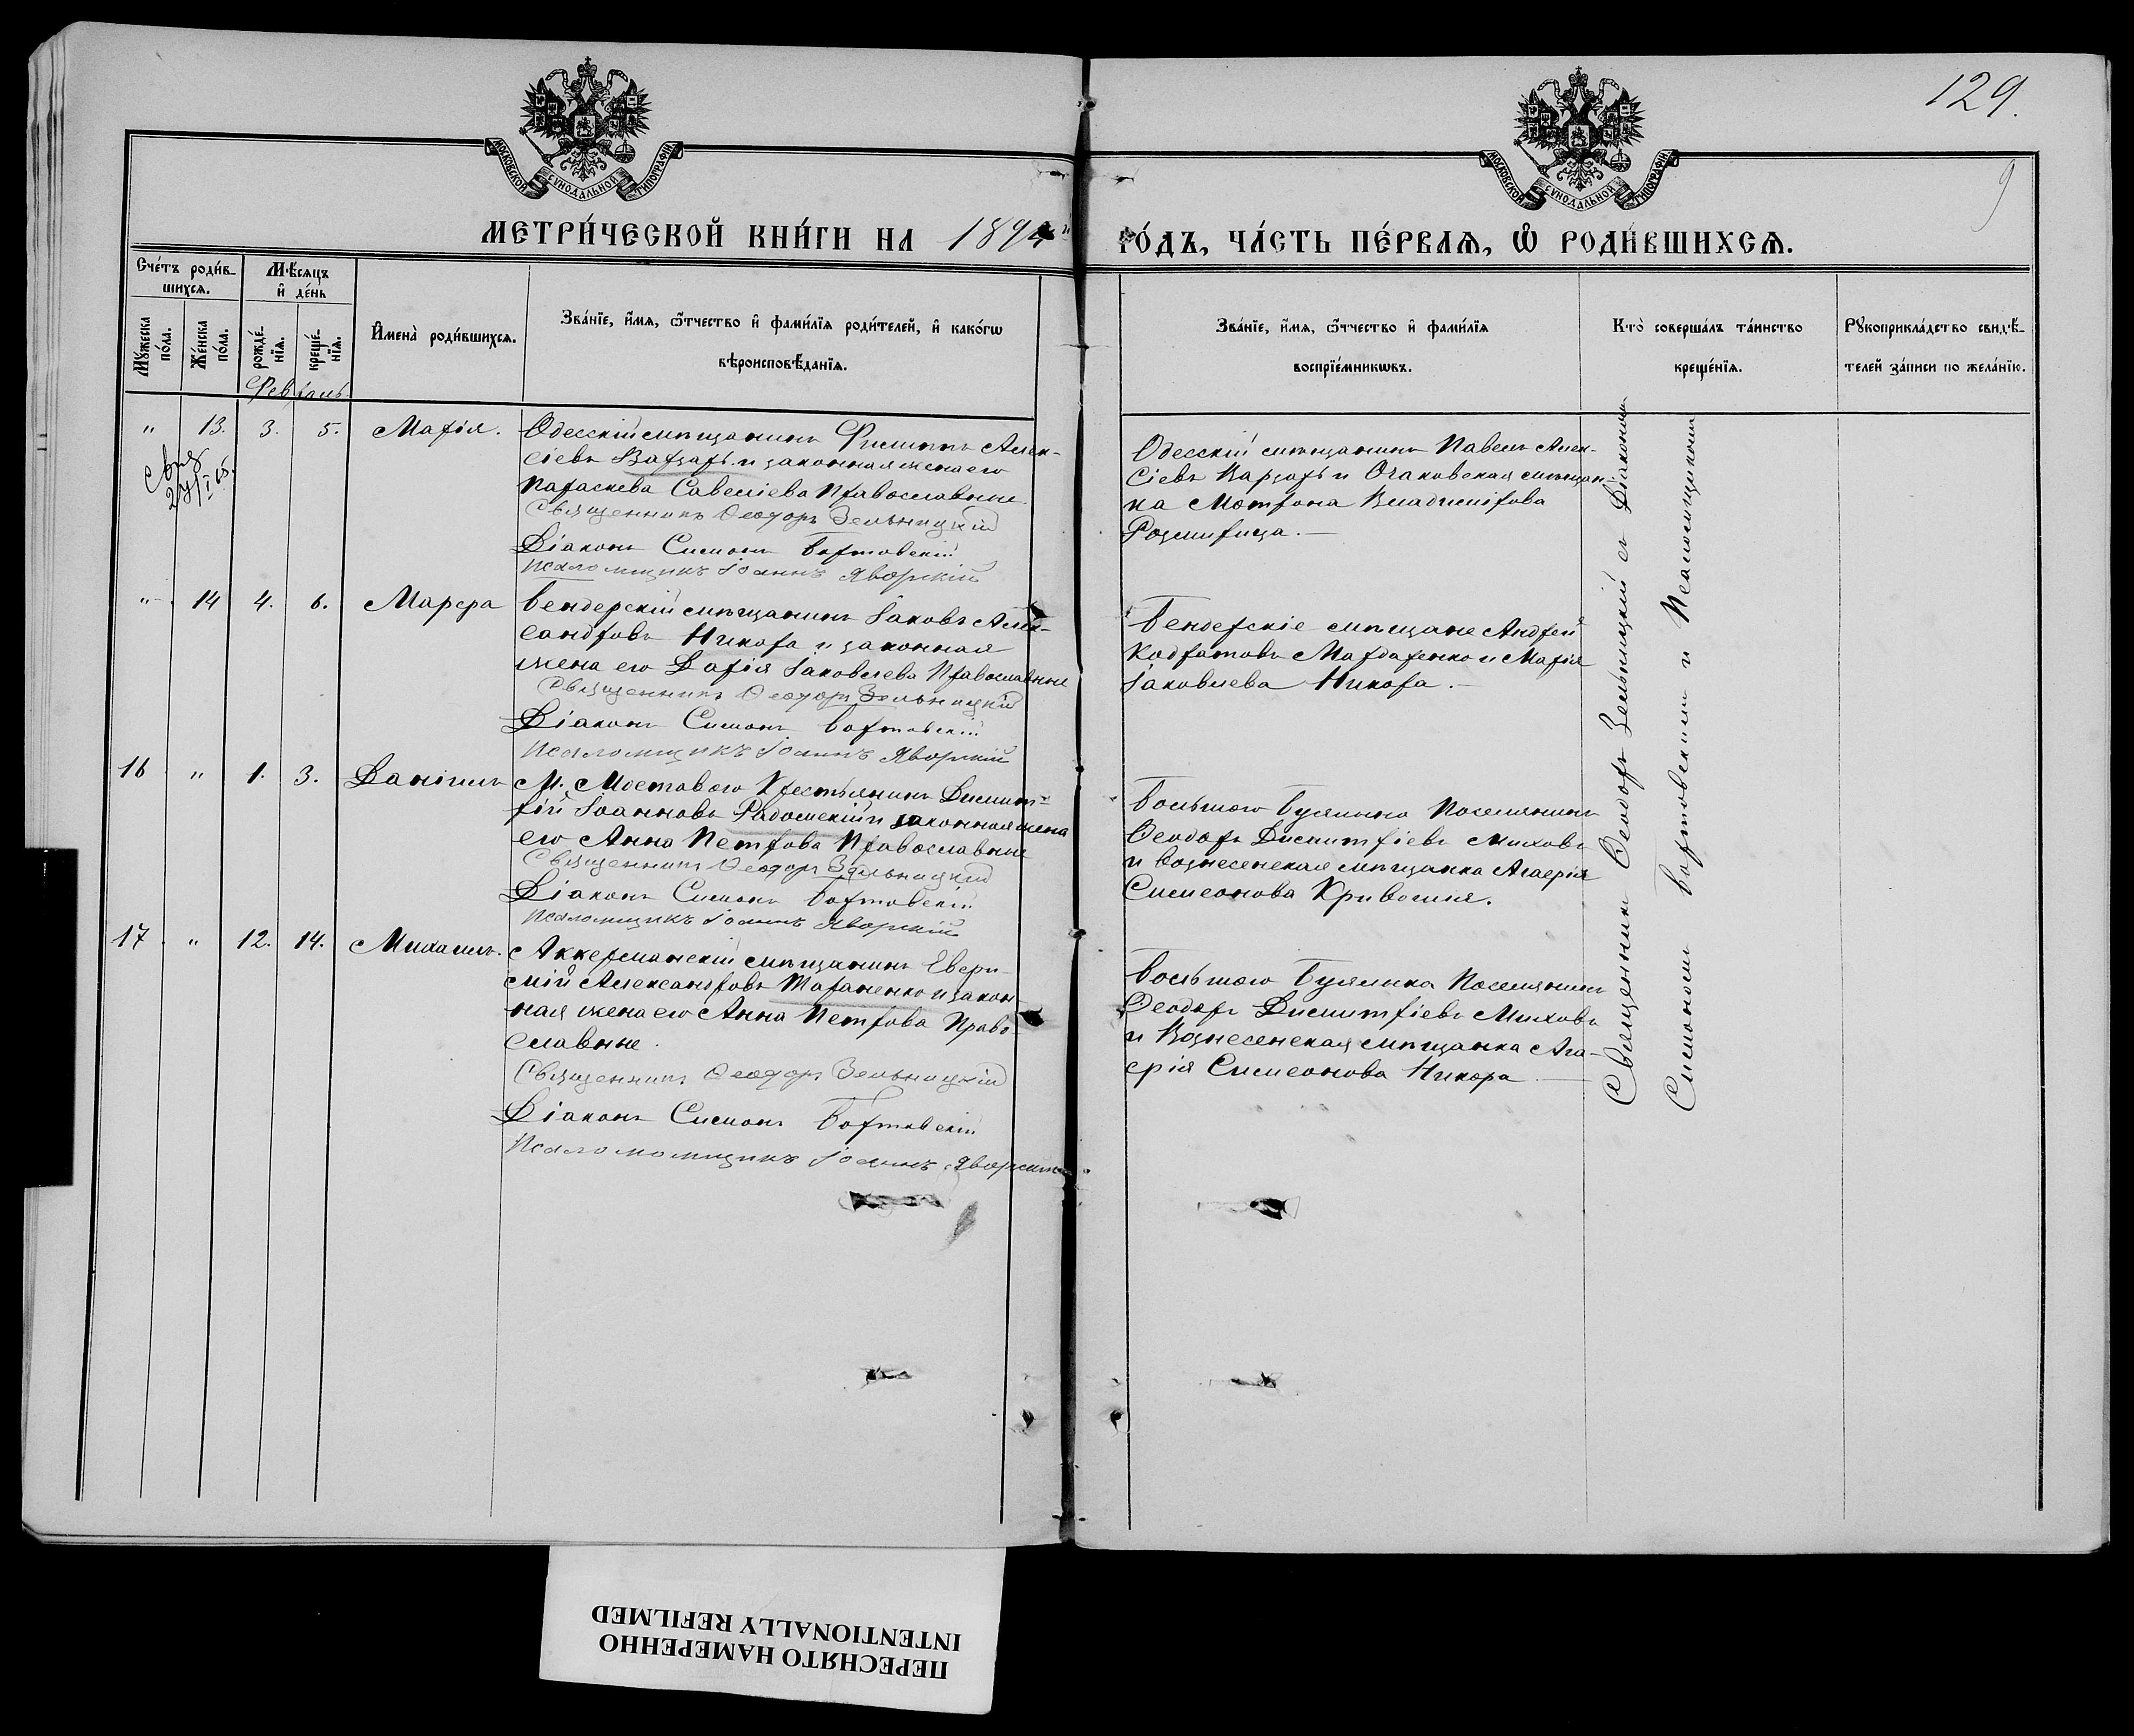 129.
9
МОСКОВСКОЙ СѴНОДАЛЬНОЙ ТИПОГРАФІИ
МОСКОВСКОЙ СѴНОДАЛЬНОЙ ТИПОГРАФІИ
МЕТРИ́ЧЕСКОЙ КНИ́ГИ НА 1894й
ГО́ДЪ, ЧА́СТЬ ПЕ́РВАѦ, Ѡ РОДИ́ВШИХСѦ.
Сче́тъ роди́в-
шихсѧ.
Мѣ́сѧцъ
и҆ де́нь
Мꙋ́жеска по́ла.
Же́нска по́ла.
рожде́-нїѧ.
креще́-нїѧ.
И҆мена̀ роди́вшихсѧ.
Зва́нїе, и҆́мѧ, ѻ҆́тчество и҆ фами́лїѧ роди́телей, и҆ како́гѡ
вѣроисповѣ́данїѧ.
Зва́нїе, и҆́мѧ, ѻ҆́тчество и҆ фами́лїѧ
воспрїе́мникѡвъ.
Кто̀ соверша́лъ та́инство
креще́нїѧ.
Рꙋкоприкла́дство свидѣ́-
телей за́писи по жела́нїю.
Февраль
" 13. 3. 5. Марія.
Одесскій мѣщанинъ Филиппъ Алек-
сіевъ Варзарь и законная жена его
Параскева Савеліева Православные
Священникъ Ѳеодоръ Зельницкій
Діаконъ Симонъ Бортовскій
Псаломщикъ Іоаннъ Яворскій
Одесскій мѣщанинъ Павелъ Алек-
сіевъ Варзарь и Очаковская мѣщан-
ка Мотрона Владимірова
" 14 4. 6. Марѳа
Бендерскій мѣщанинъ Іаковъ Алек-
сандровъ Никора и законная
жена его Дарія Іаковлева Православные
Священникъ Ѳеодоръ Зельницкій
Діаконъ Симонъ Бортовскій
Псаломщикъ Іоаннъ Яворскій
Бендерскіе мѣщане Андрей
Кодратовъ Мардаренко и Марія
Іаковлева Никора.
16 " 1. 3. Даніилъ
М. Мостового Крестьянинъ Димит-
рій Іоанновъ Радомскій и законная жена
его Анна Петрова Православные
Священникъ Ѳеодоръ Зельницкій
Діаконъ Симонъ Бортовскій
Псаломщикъ Іоаннъ Яворскій
Большого Буялыка Поселянинъ
Ѳеодоръ Димитріевъ Миховъ
и Вознесенская мѣщанка Агаѳія
Симеонова
17 " 12. 14. Михаилъ.
Аккерманскій мѣщанинъ Евфи-
мій Александровъ Тараненко и закон-
ная жена его Анна Петрова Право-
славные.
Священникъ Ѳеодоръ Зельницкій
Діаконъ Симонъ Бортовскій
Псаломщикъ Іоаннъ Яворскій
Большого Буялыка Поселянинъ
Ѳеодоръ Димитріевъ Миховъ
и Вознесенская мѣщанка Ага-
ѳія Симеонова Никора
Священникъ Ѳеодоръ Зельницкій съ Діакономъ
Симономъ Бортовскимъ и Псаломщикомъ
ПЕРЕСНЯТО НАМЕРЕННО
INTENTIONALLY REFILMED